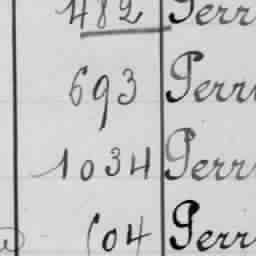 482 Perr
693 Perr
1034 Perr
604 Perr